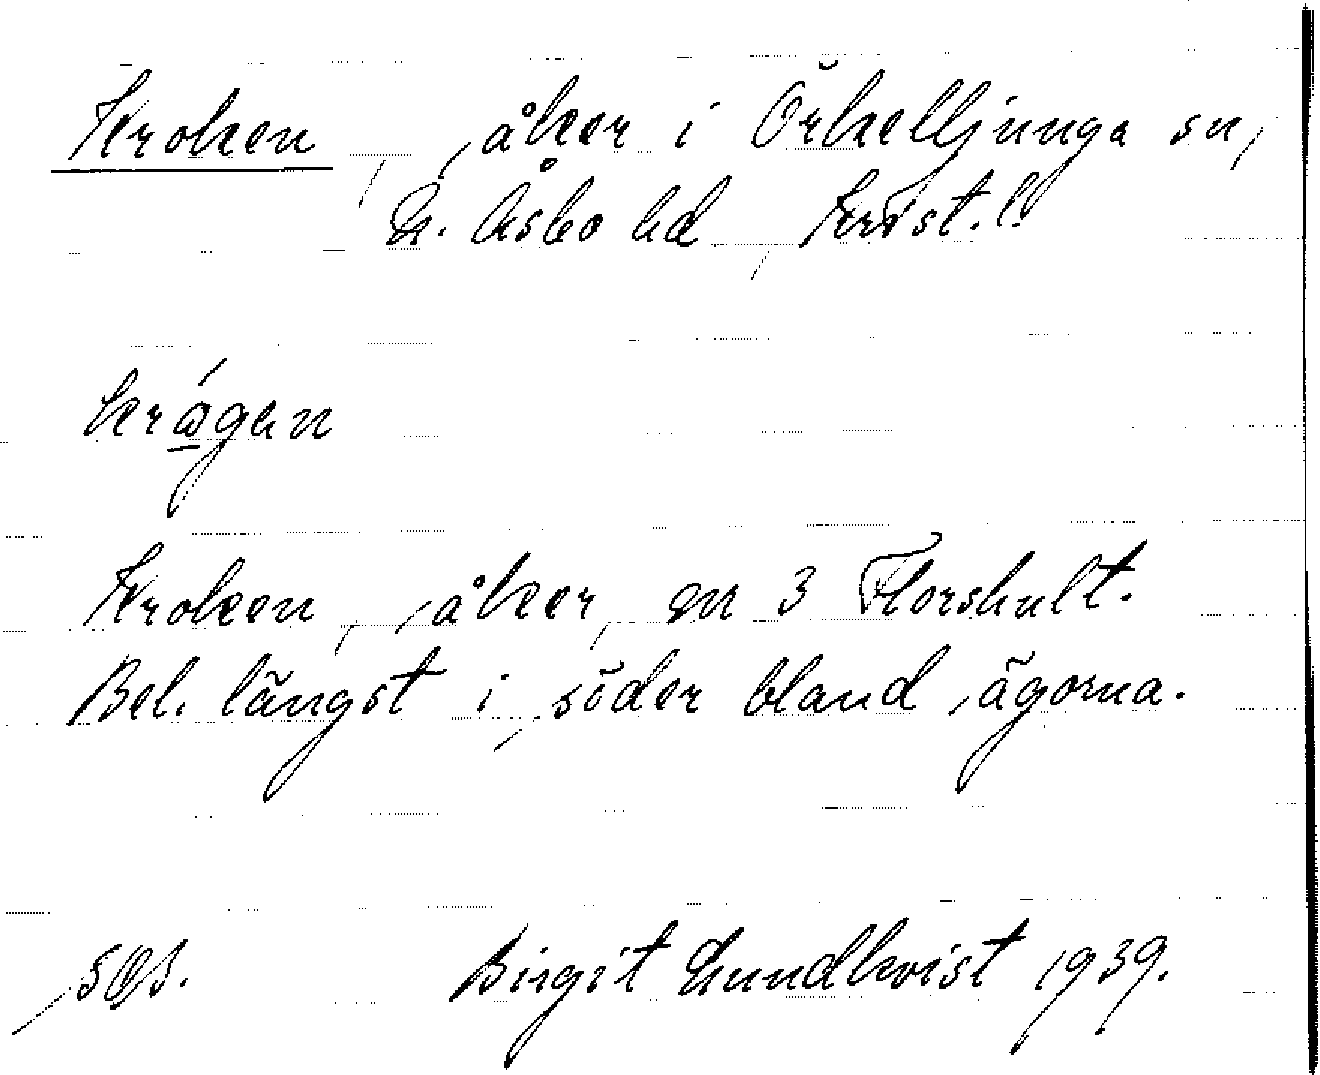 Kroken, åker i Örkelljunga sn,
N. Åsbo hd, Krist. l.
krågen
Kroken, åker, gn 3 Florshult.
Bel. längst i söder bland ägorna.
sgs. Birgit Lundkvist 1939.